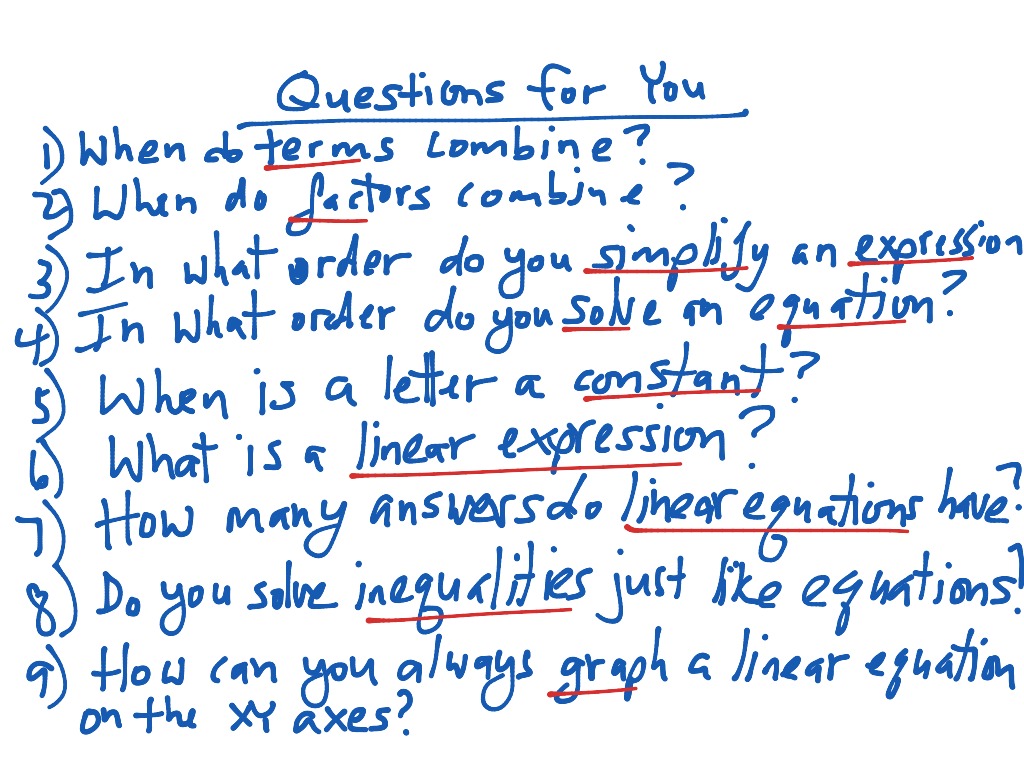 Questions for You
1) When do terms combine?
2) When do factors combine?
3) In what order do you simplify an expression
4) In what order do you solve an equation?
5) When is a letter a constant?
6) What is a linear expression?
7) How many answers do linear equations have?
8) Do you solve inequalities just like equations?
9) How can you always graph a linear equation
on the XY axes?